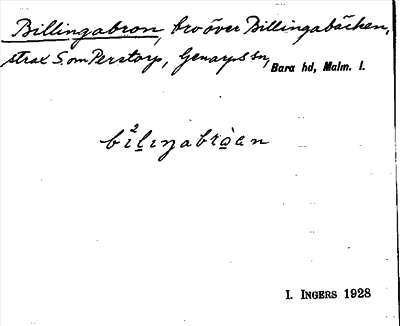 Billingabron, bro över Billingabäcken,
strax S. om Perstorp, Genarps sn, Bara hd, Malm. l.
I. INGERS 1928